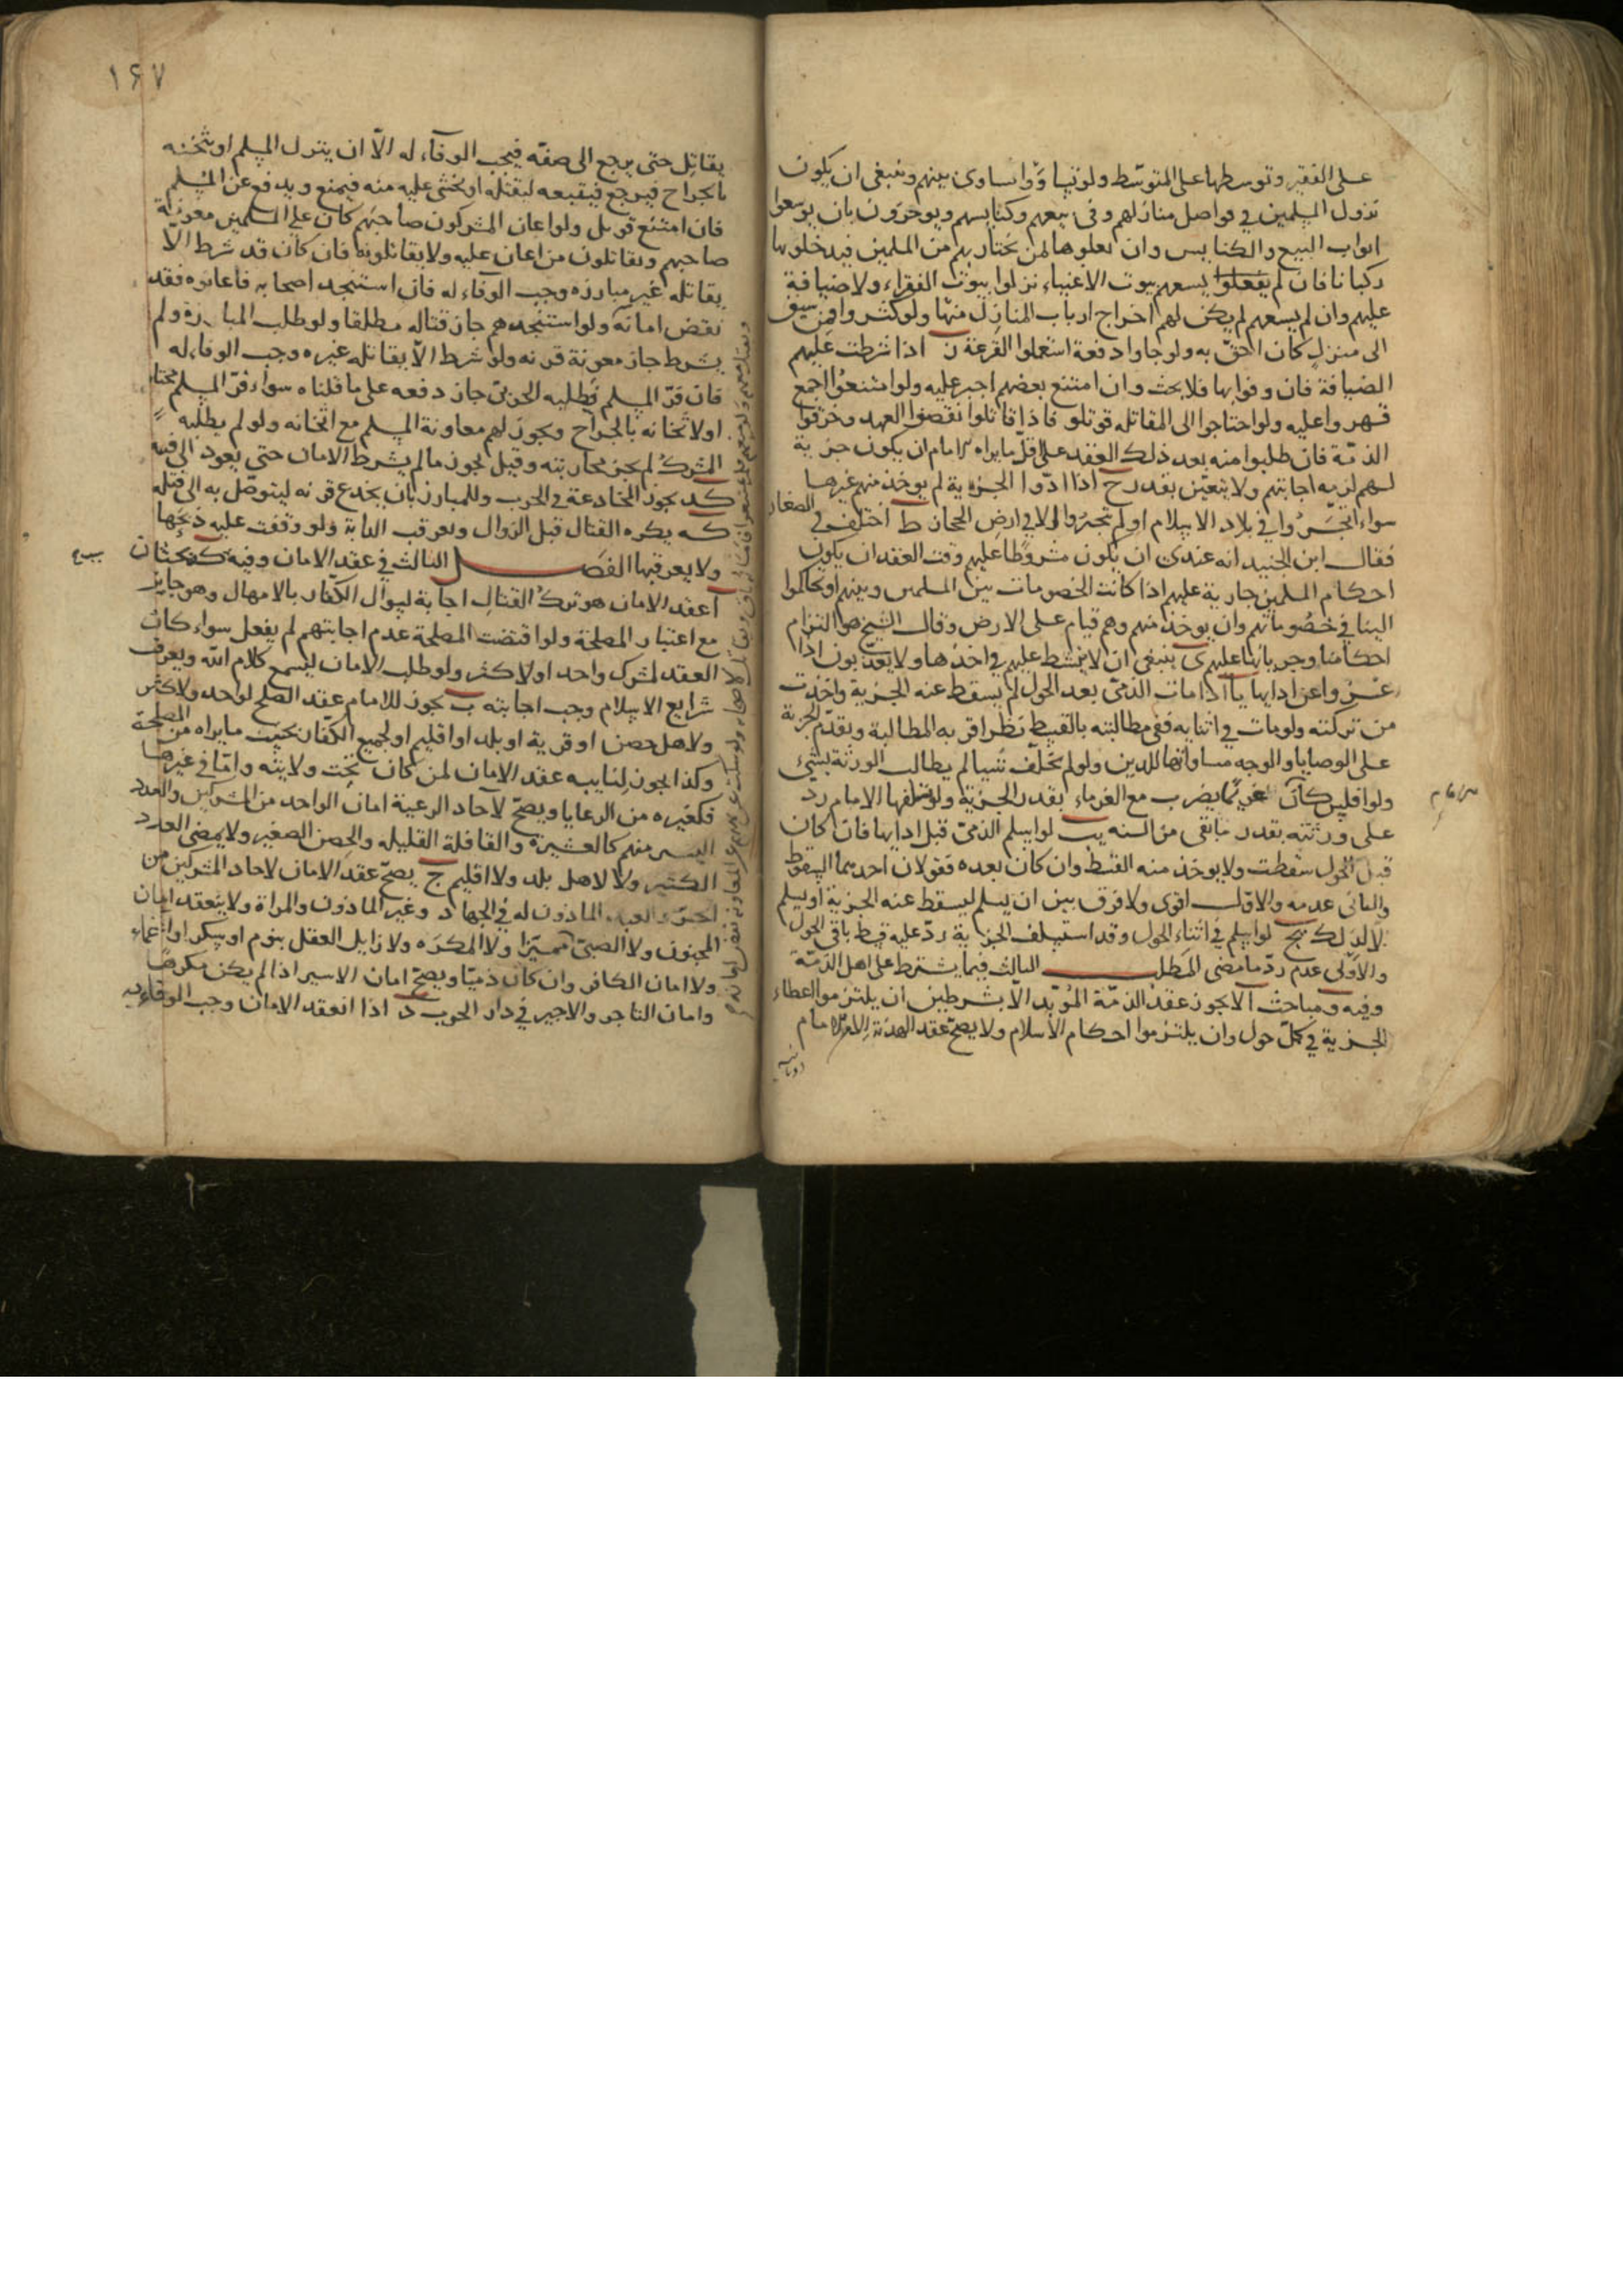 على الفقير وتوسطها على المتوسط ولو تساووا ساوى بينهم وينبغى ان يكون
نزول المسلمين فى فواضل منازلهم وفى بيعهم وكنايسهم ويؤمرون بان يوسعوا
ابواب البيع والكنايس وان يعلوها لمن يجتاز بهم من المسلمين فيدخلونها
ركبانا فان لم يفعلوا يسعهم بيوت الاغنياء نزلوا بيوت الفقراء ولا ضيافة
عليهم وان لم يسعهم لم يكن لهم اخراج ارباب المنازل منها ولو كثروا فمن سبق
الى منزل كان احق به ولو جاوا دفعة استعملوا القرعة ز اذا شرطت عليهم
الضيافة فان وفوا بها فلا بحث وان امتنع بعضهم اجبر عليه ولو امتنعوا اجمع
قهروا عليه ولو احتاجوا الى المقاتلة قوتلو فاذا قاتلوا نقضوا العهد وخرقوا
الذمة فان طلبوا منه بعد ذلك العقد على اقل ما يراه الامام ان يكون جزية
لهم لزمه اجابتهم ولا يتعين بقدر ح اذا ادوا الجزية لم يوخذ منهم غيرها
سواء اتجروا فى بلاد الاسلام او لم يتجروا الا فى ارض الحجاز ط اختلف فى الصغار
فقال ابن الجنيد انه عندى ان يكون مشروطا عليهم وقت العقد ان يكون
احكام المسلمين جارية عليهم اذا كانت الخصومات بين المسلمين وبينهم او تحاكموا
الينا فى خصوماتهم وان يوخذ منهم وهم قيام على الارض وقال الشيخ هو التزام
احكامنا وجريانها عليهم ى ينبغى ان لا يشط عليهم فى اخذها ولا يعذبون اذا
عن ادايها يا اذا مات الذمى بعد الحول لم يسقط عنه الجزية واخذت
من تركته ولو مات فى اثنايه ففى مطالبته بالقسط نظر اقربه المطالبة وتقدم الجزية
على الوصايا والوجه مساواتها للدين ولو لم يخلف شيئا لم يطالب الورثة بشىء
ولو افلس كان غريما يضرب مع الغرماء بقدر الجزية ولو الامام رد
على ورثته بقدر ما بقى من السنه يب لو اسلم الذمى قبل ادايها فان كان
قبل الحول سقطت ولا يوخذ منه القسط وان كان بعده فقولان احدهما السقوط
والثانى عدمه والاول اقوى ولا فرق بين ان يسلم ليسقط عنه الجزية او يسلم
لا لذلك يج لو اسلم فى اثناء الحول وقد استسلف الجزية رد عليه قسط باقى الحول
والاولى عدم رد ما مضى المطلب الثالث فيما يشترط على اهل الذمة
وفيه مباحث ا لا يجوز عقد الذمة المؤبد الا بشرطين ان يلتزموا اعطاء
الجزية فى كل حول وان يلتزموا احكام الاسلام ولا يصح عقد الهدنة الا من الامام
١٤٧
يقاتل حتى يرجع الى صفه فيجب الوفاء له الا ان يترك المسلم او يثخنه
بالجراح فيرجع فيتبعه ليقتله او يخشى عليه منه فيمنع ويدفع عن المسلم
فان امتنع قوتل ولو اعان المشركون صاحبهم كان على المسلمين معونة
صاحبهم ويقاتلون من اعان عليه ولا يقاتلونه فان كان قد شرط الا
يقاتله غير مبارزه وجب الوفاء له فان استنجد اصحابه فاعانوه فقد
نقض امانه ولو استنجدهم جاز قتاله مطلقا ولو طلب المبارزة ولم
يشرط جاز معونة قرنه ولو شرط الا يقاتله غيره وجب الوفاء له
فان فر المسلم فطلبه الحربى جاز دفعه على ما قلناه سواء فر المسلم مختارا
او لاثخانه بالجراح ويجوز لهم معاونة المسلم مع اثخانه ولو لم يطلبه
المشرك لم يجز محاربته وقيل يجوز ما لم يشرط الامان حتى يعود الى فيه
كد يجوز المخادعة فى الحرب وللمبارز بان يخدع قرنه ليتوصل به الى قتله
كه يكره القتال قبل الزوال وتعرقب الدابة ولو وقفت عليه ذبحها
ولا يعرقبها الفصل الثالث فى عقد الامان وفيه بحثان
ا عقد الامان هو ترك القتال اجابة لسؤال الكفار بالامهال وهو جايز
مع اعتبار المصلحة ولو اقتضت المصلحة عدم اجابتهم لم يفعل سواء كان
العقد لمشرك واحد او لاكثر ولو طلب الامان ليسمع كلام الله ويعرف
شرايع الاسلام وجب اجابته ب يجوز للامام عقد الصلح لواحد ولاكثر
ولاهل حصن او قرية او بلد او اقليم او لجميع الكفار بحيث ما يراه من المصلحة
وكذا يجوز لنايبه عقد الامان لمن كان تحت ولايته واما فى غيرها
فكغيره من الرعايا ويصح لاحاد الرعية امان الواحد من المشركين والعدد
اليسير منهم كالعشيرة والقافلة القليله والحصن الصغير ولا يمضى العدد
الكثير ولا لاهل بلد ولا اقليم ج يصح عقد الامان لاحاد المشركين من
الحر والعبد الماذون له فى الجهاد وغير الماذون والمراة ولا ينعقد امان
المجنون ولا الصبى مميزا ولا المكره ولا زايل العقل بنوم او سكر او اغماء
ولا امان الكافر وان كان ذميا ويصح امان الاسير اذا لم يكن مكرها
وامان التاجر والاجير فى دار الحرب د اذا انعقد الامان وجب الوفاء به